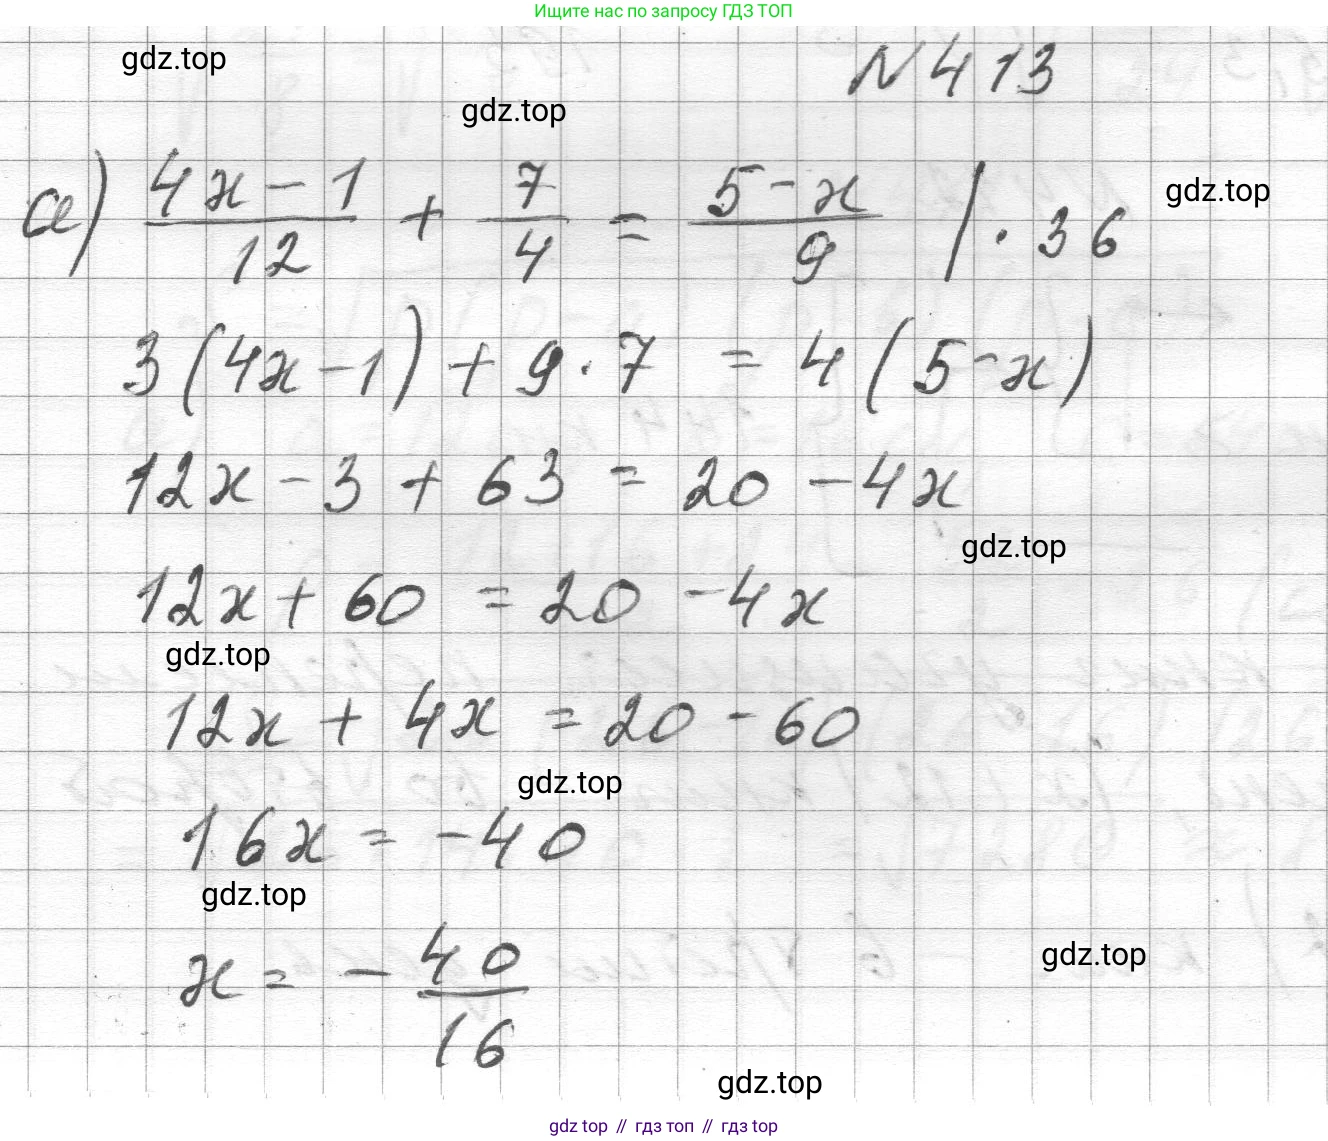 Ищите нас по запросу ГДЗ ТОП
gdz.top
N 413
gdz.top
а) (4x - 1)/12 + 7/4 = (5 - x)/9 | · 36
gdz.top
3(4x - 1) + 9 · 7 = 4(5 - x)
12x - 3 + 63 = 20 - 4x
gdz.top
12x + 60 = 20 - 4x
gdz.top
12x + 4x = 20 - 60
gdz.top
16x = -40
gdz.top
x = - 40/16
gdz.top
gdz.top
gdz top // гдз топ // гдз top